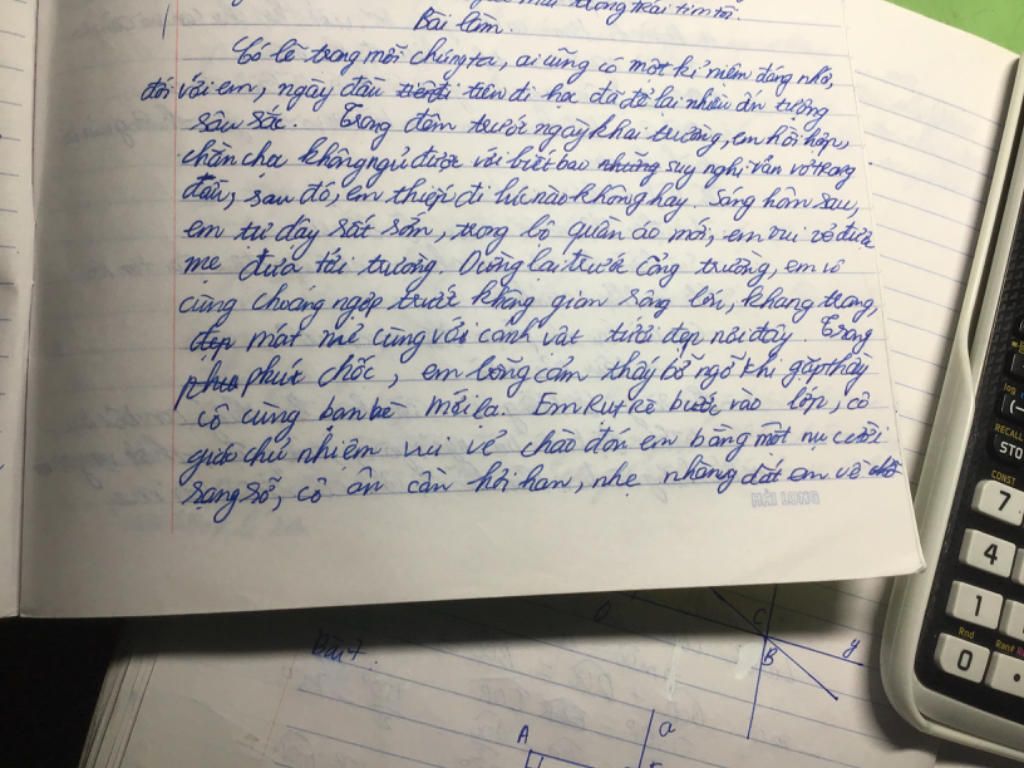 mãi trong trái tim tôi.
Bài làm.
Có lẽ trong mỗi chúng ta, ai cũng có một kỉ niệm đáng nhớ,
đối với em, ngày đầu tiên đi học đã để lại nhiều ấn tượng
sâu sắc. Trong đêm trước ngày khai trường, em hồi hộp,
chằn chọc không ngủ được với biết bao những suy nghĩ vẩn vơ trong
đầu, sau đó, em thiếp đi lúc nào không hay. Sáng hôm sau,
em tự dậy sất sớm, trong bộ quần áo mới, em vui vẻ được
mẹ đưa tới trường. Dừng lại trước cổng trường, em vô
cùng choáng ngợp trước không gian rộng lớn, khang trang,
đẹp mát mẻ cùng với cảnh vật tươi đẹp nơi đây. Trong
phút chốc, em bỗng cảm thấy bỡ ngỡ khi gặp thầy
cô cùng bạn bè mới lạ. Em rụt rè bước vào lớp, cô
giáo chủ nhiệm vui vẻ chào đón em bằng một nụ cười
rạng rỡ, cô ân cần hỏi han, nhẹ nhàng dắt em về chỗ
HẢI LONG
Bài 7.
C
B
y
A
a
CONST
RECALL
STO
log
(−)
7
4
1
Rnd
0
Ran#